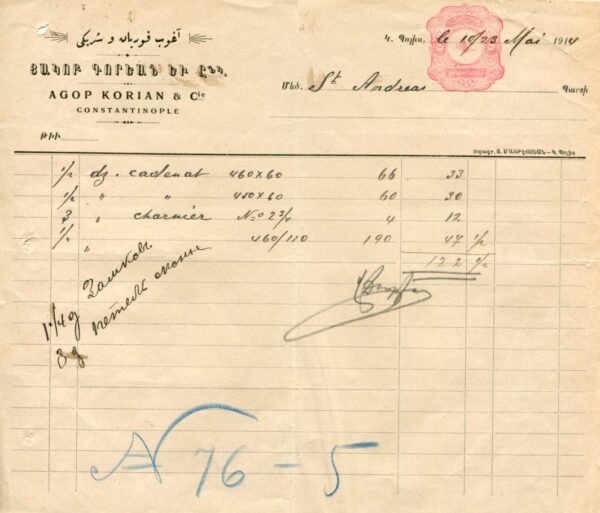 آغوب قوریان و شریکی
ՅԱԿՈԲ ԳՈՐԵԱՆ ԵՒ ԸՆԿ.
AGOP KORIAN & Cie
CONSTANTINOPLE
Կ. Պոլիս, le 10/23 Mai 1914
Մեծ. St Andreas Պարտի
ԹԻՒ
Տպագր. Յ. ՄԱՏԹԷՈՍԵԱՆ - Կ. Պոլիս
1/2 dz. cadenat 460x60 66 33
1/2 " " 410x60 60 30
3 " charnier No 2 3/4 4 12
1/2 " 460/110 190 47 1/2
122 1/2
1 1/4 д Замков
3 д петель
N 76-5